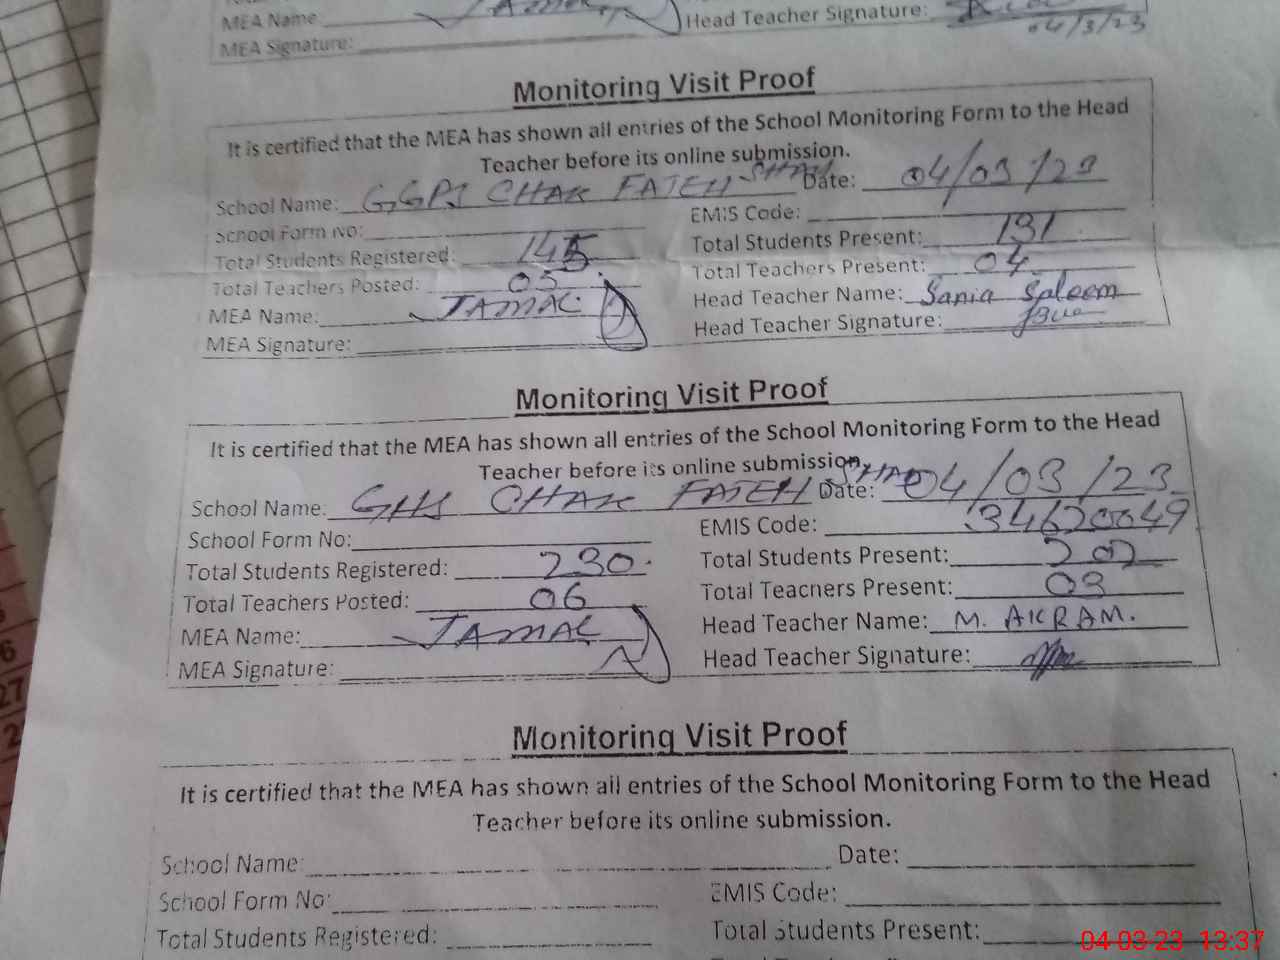 MEA Name: JAMAL Head Teacher Signature:
MEA Signature: 04/3/23
Monitoring Visit Proof
It is certified that the MEA has shown all entries of the School Monitoring Form to the Head
Teacher before its online submission.
School Name: GGPS CHAK FATEH SHAH Date: 04/03/23
School Form No: EMIS Code:
Total Students Registered: 145 Total Students Present: 131
Total Teachers Posted: 05 Total Teachers Present: 04
MEA Name: JAMAL Head Teacher Name: Sania Saleem
MEA Signature: Head Teacher Signature:
Monitoring Visit Proof
It is certified that the MEA has shown all entries of the School Monitoring Form to the Head
Teacher before its online submission.
School Name: GHS CHAK FATEH SHAH Date: 04/03/23
School Form No: EMIS Code: 34620049
Total Students Registered: 230 Total Students Present: 202
Total Teachers Posted: 06 Total Teachers Present: 03
MEA Name: JAMAL Head Teacher Name: M. AKRAM.
MEA Signature: Head Teacher Signature:
Monitoring Visit Proof
It is certified that the MEA has shown all entries of the School Monitoring Form to the Head
Teacher before its online submission.
School Name: Date:
School Form No: EMIS Code:
Total Students Registered: Total Students Present:
04-03-23 13:37